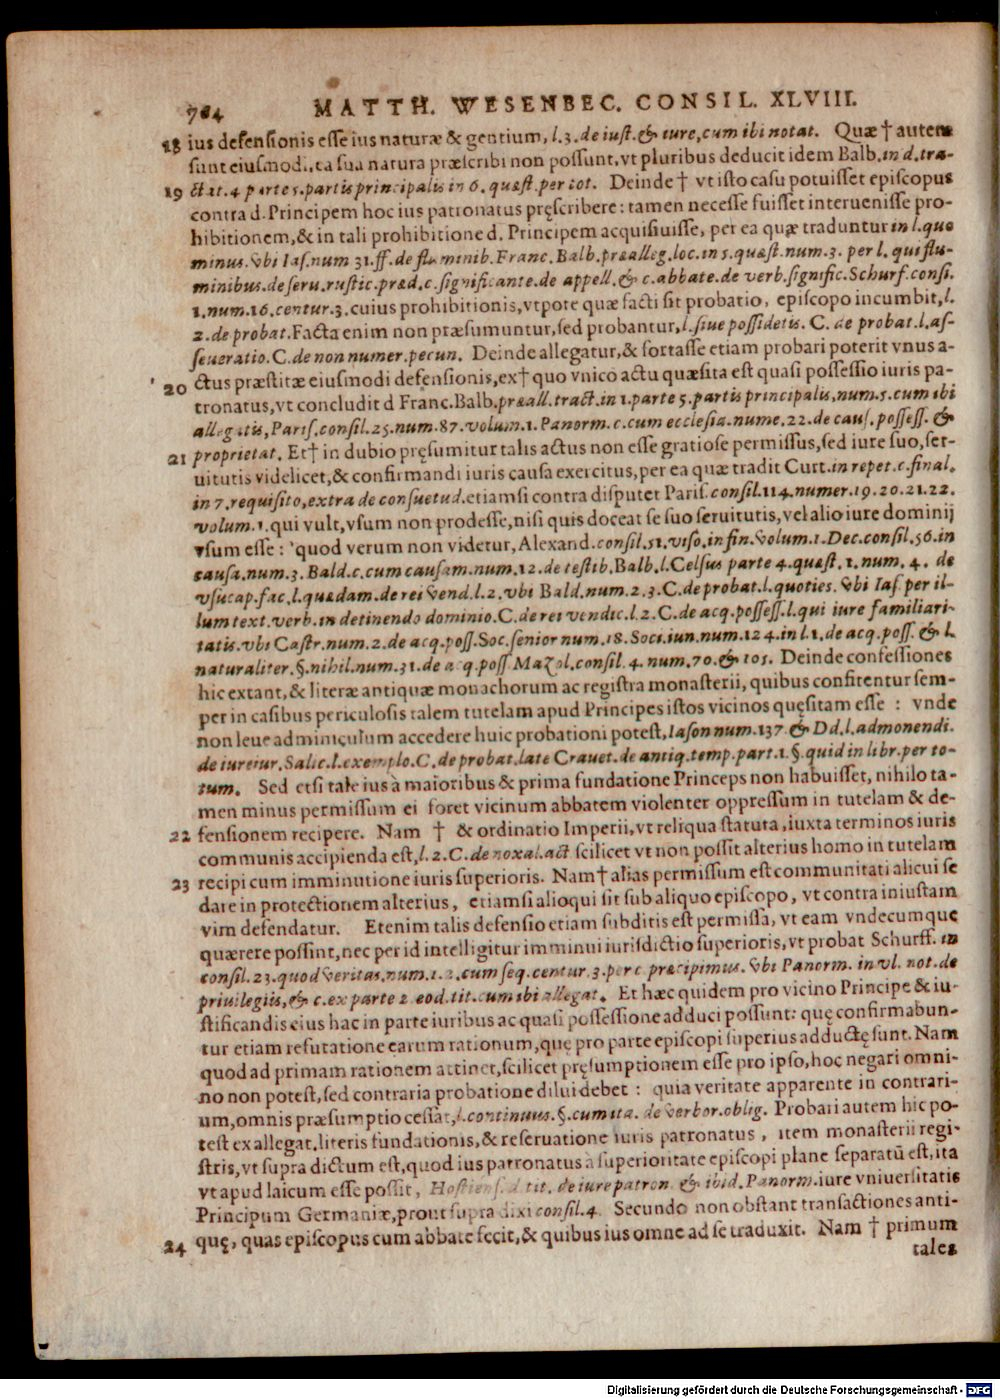 764 MATTH. WESENBEC. CONSIL. XLVIII.
18 ius defensionis esse ius naturæ & gentium, l.3.de iust.& iure,cum ibi notat. Quæ † autem
sunt eiusmodi, ea sua natura præscribi non possunt, vt pluribus deducit idem Balb.in d.tra-
19 ctat.4 parte 5.partis principalis in 6.quæst.per tot. Deinde † vt isto casu potuisset episcopus
contra d.Principem hoc ius patronatus pręscribere: tamen necesse fuisset interuenisse pro-
hibitionem,& in tali prohibitione d. Principem acquisiuisse, per ea quæ traduntur in l.quo
minus.vbi Ias.num 31.ff.de fluminib.Franc.Balb.præalleg.loc.in 5.quæst.num.3. per l. qui flu-
minibus.de seru.rustic.præd.c.significante.de appell.& c.abbate.de verb.signific.Schurf.consi.
1.num.16.centur.3.cuius prohibitionis, vtpote quæ facti sit probatio, episcopo incumbit,l.
2.de probat.Facta enim non præsumuntur,sed probantur,l.siue possidetis. C. de probat.l.as-
seueratio.C.de non numer.pecun. Deinde allegatur,& fortasse etiam probari poterit vnus a-
20 ctus præstitæ eiusmodi defensionis,ex† quo vnico actu quæsita est quasi possessio iuris pa-
tronatus,vt concludit d Franc.Balb.præall.tract.in 1.parte 5.partis principalis,num.5.cum ibi
allegatis,Paris.consil.25.num.87.volum.1.Panorm.c.cum ecclesia.nume.22.de caus.possess. &
21 proprietat. Et† in dubio pręsumitur talis actus non esse gratiose permissus,sed iure suo,ser-
uitutis videlicet,& confirmandi iuris causa exercitus,per ea quæ tradit Curt.in repet.c.final.
in 7.requisito,extra de consuetud.etiamsi contra disputet Paris.consil.114.numer.19.20.21.22.
volum.1.qui vult,vsum non prodesse,nisi quis doceat se suo seruitutis,vel alio iure dominij
vsum esse: quod verum non videtur, Alexand.consil.51.viso.in fin.volum.1.Dec.consil.56.in
causa.num.3.Bald.c.cum causam.num.12.de testib.Balb.l.Celsus parte 4.quæst.1.num.4. de
vsucap.fac.l.quædam.de rei vend.l.2.vbi Bald.num.2.3.C.de probat.l.quoties.vbi Ias.per il-
lum text.verb.in detinendo dominio.C.de rei vendic.l.2.C.de acq.possess.l.qui iure familiari-
tatis.vbi Castr.num.2.de acq.poss.Soc.senior num.18.Soci.iun.num.124.in l.1.de acq.poss.& l.
naturaliter.§.nihil.num.31.de acq.poss.Mazol.consil.4.num.70.& 101. Deinde confessiones
hic extant,& literæ antiquæ monachorum ac registra monasterii, quibus confitentur sem-
per in casibus periculosis talem tutelam apud Principes istos vicinos quęsitam esse: vnde
non leue adminiculum accedere huic probationi potest,Iason num.137.& Dd.l.admonendi.
de iureiur.Salic.l.exemplo.C.de probat.late Crauet.de antiq.temp.part.1.§.quid in libr.per to-
tum. Sed etsi tale ius à maioribus & prima fundatione Princeps non habuisset, nihilo ta-
men minus permissum ei foret vicinum abbatem violenter oppressum in tutelam & de-
22 fensionem recipere. Nam † & ordinatio Imperii, vt reliqua statuta, iuxta terminos iuris
communis accipienda est,l.2.C.de noxal.act scilicet vt non possit alterius homo in tutelam
23 recipi cum imminutione iuris superioris. Nam† alias permissum est communitati alicui se
dare in protectionem alterius, etiamsi alioqui sit sub aliquo episcopo, vt contra iniustam
vim defendatur. Etenim talis defensio etiam subditis est permissa, vt eam vndecumque
quærere possint,nec per id intelligitur imminui iurisdictio superioris,vt probat Schurff. in
consil.23.quod veritas.num.1.2.cum seq.centur.3.per c præcipimus.vbi Panorm. in vl. not.de
priuilegiis,& c.ex parte 2 eod.tit.cum ibi allegat. Et hæc quidem pro vicino Principe & iu-
stificandis eius hac in parte iuribus ac quasi possessione adduci possunt: quę confirmabun-
tur etiam refutatione earum rationum,quę pro parte episcopi superius adductę sunt. Nam
quod ad primam rationem attinet,scilicet pręsumptionem esse pro ipso,hoc negari omni-
no non potest,sed contraria probatione dilui debet: quia veritate apparente in contrari-
um,omnis præsumptio cessat,l.continuus.§.cum ita. de verbor.oblig. Probari autem hic po-
test ex allegat.literis fundationis,& reseruatione iuris patronatus, item monasterii regi-
stris, vt supra dictum est,quod ius patronatus à superioritate episcopi plane separatū est,ita
vt apud laicum esse possit, Hostiens.d.tit. de iure patron. & ibid.Panorm.iure vniuersitatis
Principum Germaniæ,prout supra dixi consil.4. Secundo non obstant transactiones anti-
24 quę, quas episcopus cum abbate fecit,& quibus ius omne ad se traduxit. Nam † primum
tales
Digitalisierung gefördert durch die Deutsche Forschungsgemeinschaft - DFG